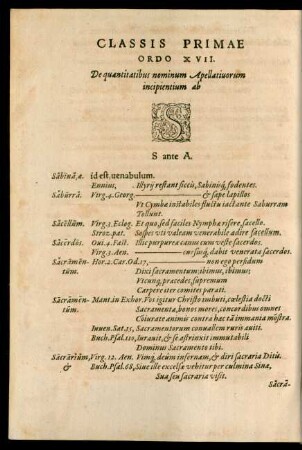 CLASSIS PRIMAE
ORDO XVII.
De quantitatibus nominum Apellatiuorum
incipientium ab
S
S ante A.
Săbīna, æ. id est. uenabulum.
Ennius, Illyrij restant siccis, Sabiniq́, fodentes.
Săbūrrā. Virg. 4. Georg. — & sæpe lapillos
Vt Cymbæ instabiles fluctu iactante Saburram
Tollunt.
Săcēllŭm. Virg. 3. Eclog. Et quo, sed faciles Nymphæ risere, sacello.
Stroz. pat. Sospes vti valeam venerabile adire sacellum.
Săcērdōs. Oui. 4. Fast. Illic purpurea canus cum veste sacerdos.
Virg. 3. Aen. — dabit venerata sacerdos.
Săcrāmēn-
tŭm.
Hor. 2. Car. Od. 17. — non ego perfidum
Dixi sacramentum: ibimus, ibimus;
Vtcunq, præcedes, supremum
Carpere iter comites parati.
Săcrāmēn-
tum.
Mant. in Exhor. Vos igitur Christo imbuti, cælestia docti
Sacramenta, bonos mores, concordibus omnes
Coiurate animis contra hæc tā immania mōstra.
Iuuen. Sat. 15, Sacramentorum conuallem ruris auiti.
Buch. Psal. 119, Iurauit, & se astrinxit immutabili
Dominus Sacramento tibi.
Săcrārĭŭm, Virg. 12. Aen. Vimq́, deûm infernam, & diri sacraria Ditis.
& Buch. Psal. 68, Siue ille excelsæ vehitur per culmina Sinæ,
Sua seu sacraria visit.
Săcrā-